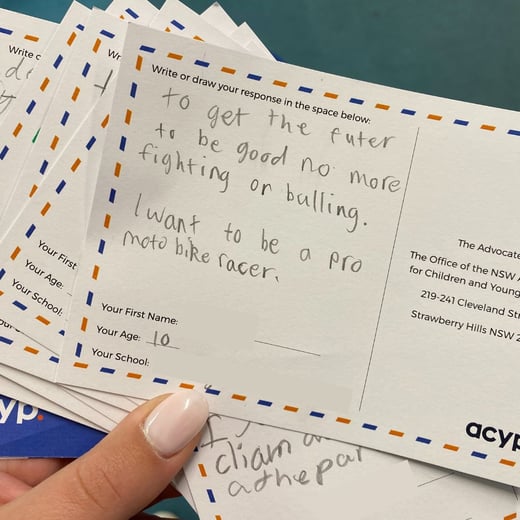 Write or draw your response in the space below:
to get the futer
to be good no more
fighting or bulling.
I want to be a pro
moto bike racer.
Your First Name:
Your Age: 10
Your School:
The Advocate
The Office of the NSW
for Children and Young
219-241 Cleveland
Strawberry Hills NSW
acyp
Write
Your First
Your Age:
Your School:
yp.